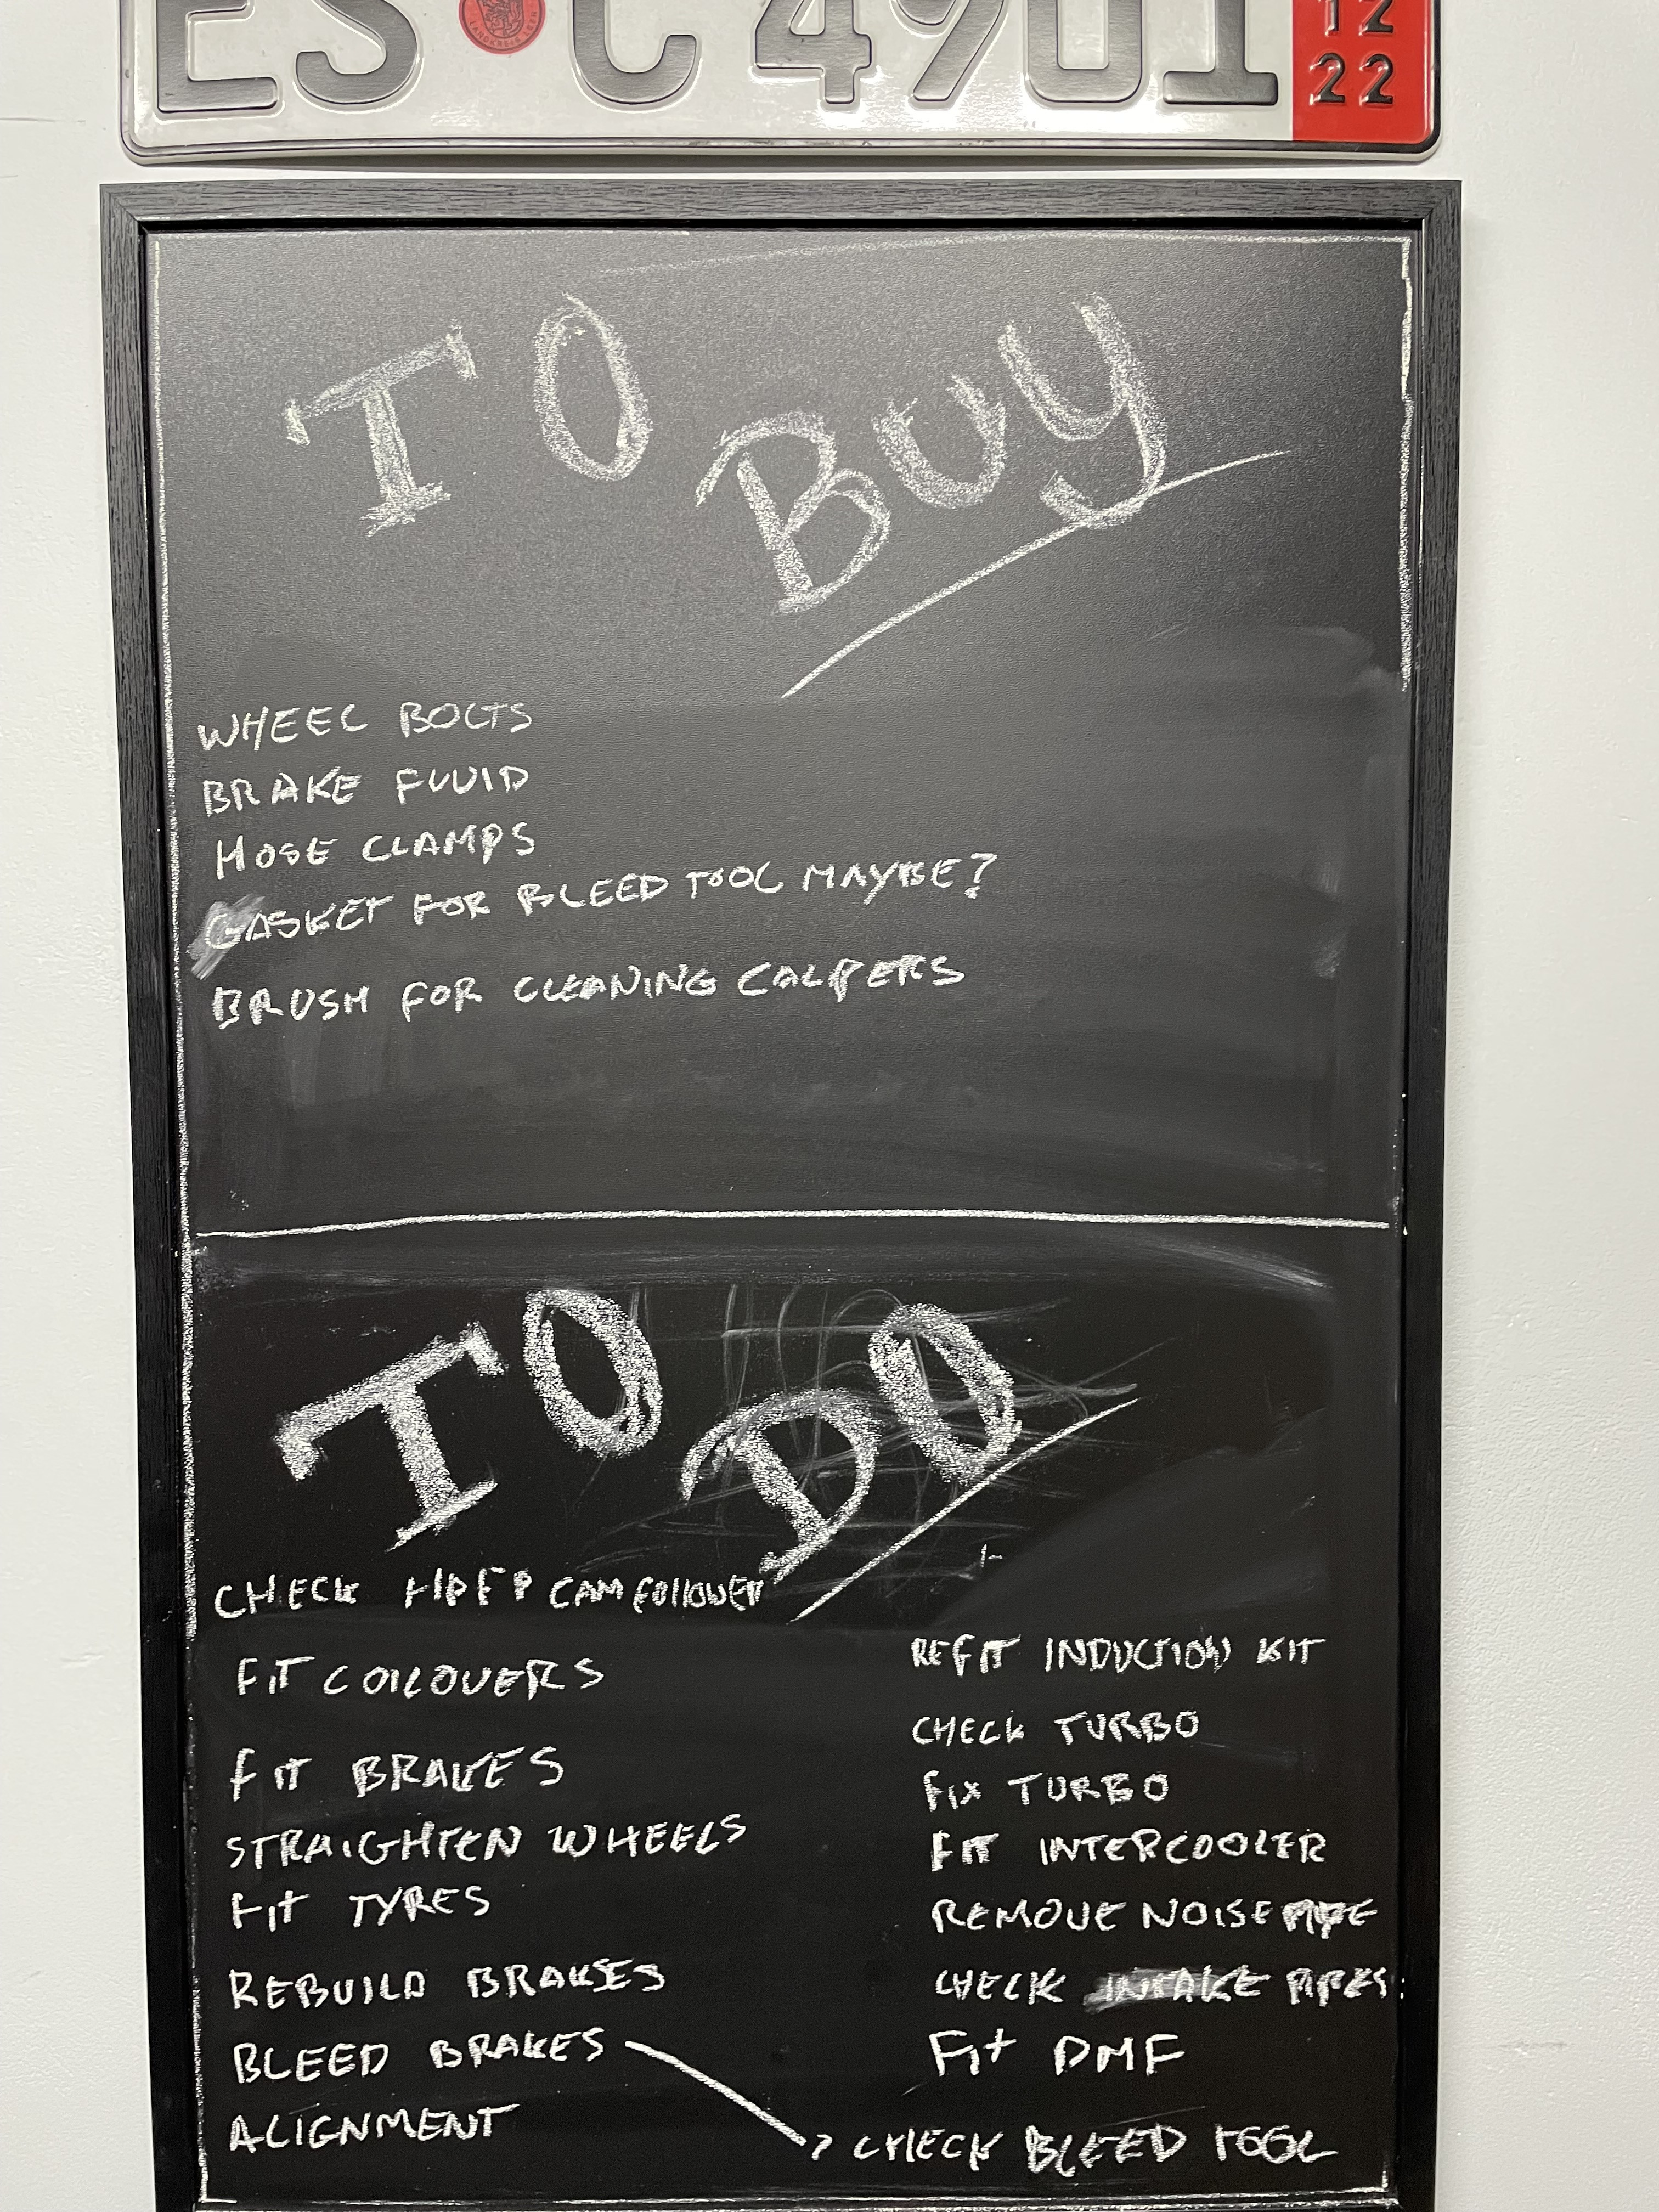 ES C 4901
12
22
TO BUY
WHEEL BOLTS
BRAKE FLUID
HOSE CLAMPS
GASKET FOR BLEED TOOL MAYBE?
BRUSH FOR CLEANING CALIPERS
TO DO
CHECK HPFP CAM FOllOWER
FiT COILOVERS
FIT BRAKES
STRAIGHTEN WHEELS
Fit TYRES
REBUILD BRAKES
BLEED BRAKES
ALIGNMENT
REFIT INDUCTION KIT
CHECK TURBO
FIX TURBO
FIT INTERCOOLER
REMOVE NOISE PIPE
CHECK INTAKE PIPES
Fit DMF
CHECK BLEED TOOL